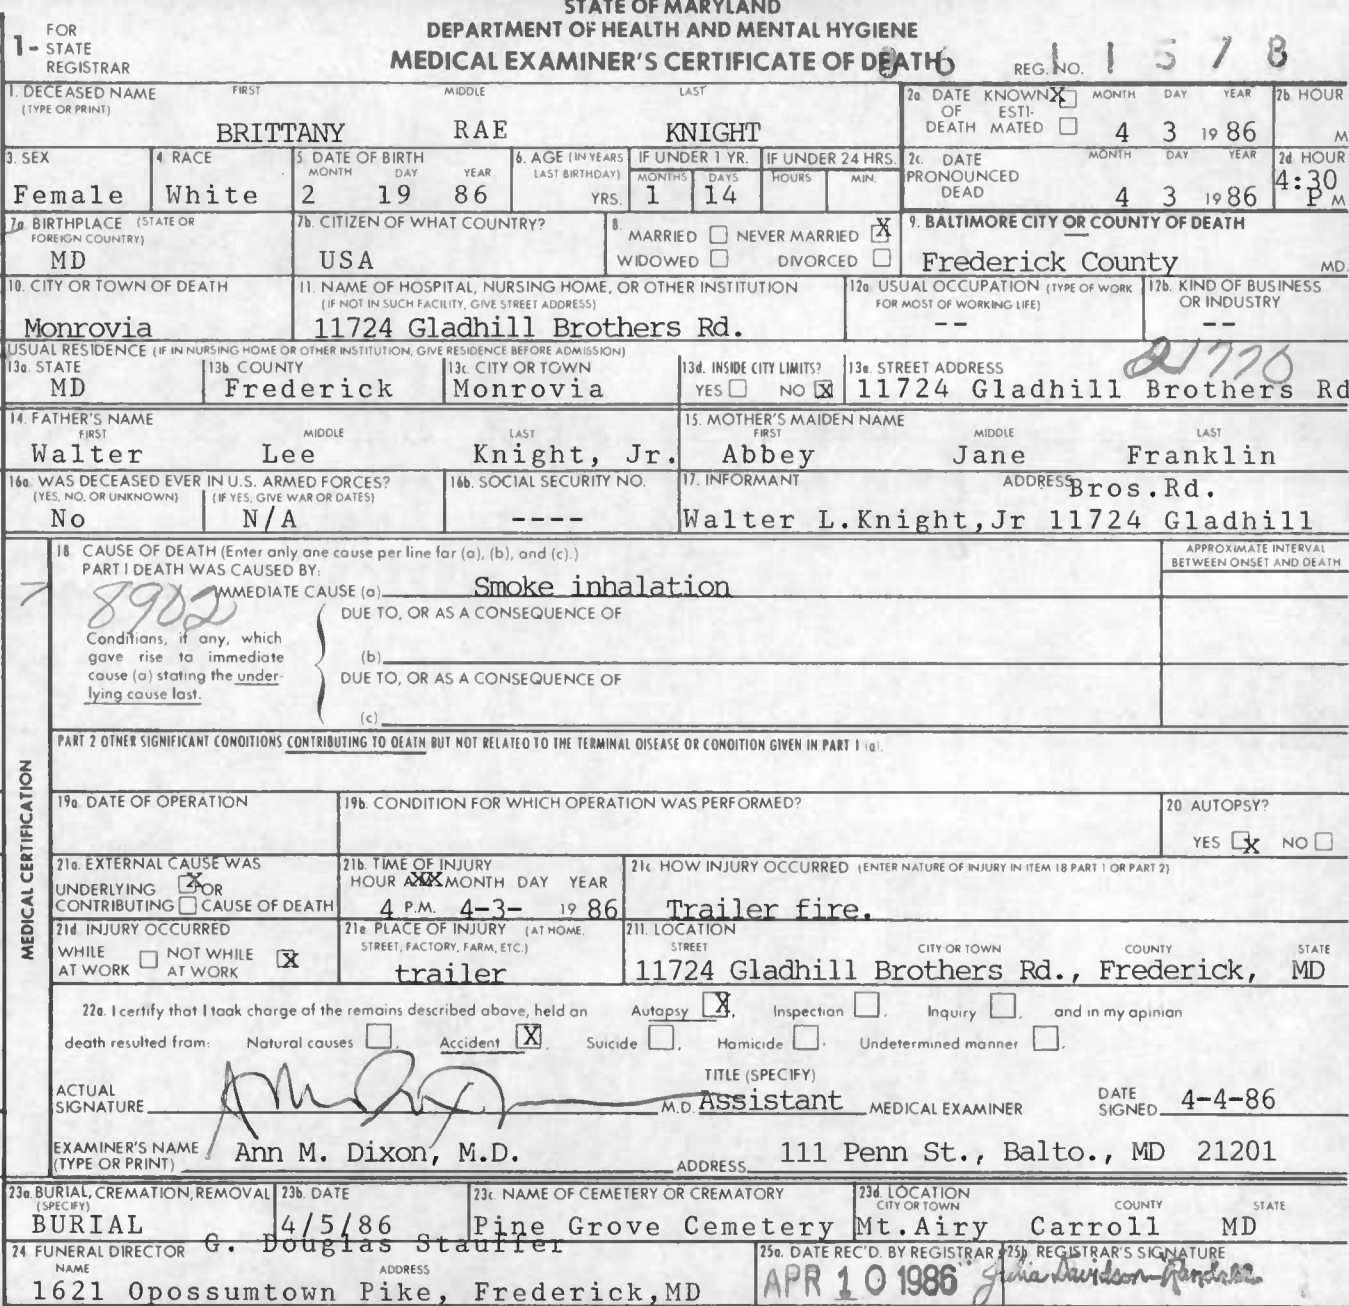 STATE OF MARYLAND
DEPARTMENT OF HEALTH AND MENTAL HYGIENE
MEDICAL EXAMINER'S CERTIFICATE OF DEATH
1- FOR STATE REGISTRAR
REG. NO. 11578
1. DECEASED NAME (TYPE OR PRINT) FIRST MIDDLE LAST
BRITTANY RAE KNIGHT
2a. DATE OF DEATH KNOWN X ESTIMATED MONTH DAY YEAR
4 3 1986
2b HOUR M
3. SEX
Female
4. RACE
White
5. DATE OF BIRTH MONTH DAY YEAR
2 19 86
6. AGE (IN YEARS LAST BIRTHDAY) YRS.
IF UNDER 1 YR. MONTHS DAYS
1 14
IF UNDER 24 HRS. HOURS MIN.
2c. DATE PRONOUNCED DEAD MONTH DAY YEAR
4 3 1986
2d HOUR
4:30 P M
7a. BIRTHPLACE (STATE OR FOREIGN COUNTRY)
MD
7b. CITIZEN OF WHAT COUNTRY?
USA
8. MARRIED NEVER MARRIED X
WIDOWED DIVORCED
9. BALTIMORE CITY OR COUNTY OF DEATH
Frederick County MD.
10. CITY OR TOWN OF DEATH
Monrovia
11. NAME OF HOSPITAL, NURSING HOME, OR OTHER INSTITUTION
(IF NOT IN SUCH FACILITY, GIVE STREET ADDRESS)
11724 Gladhill Brothers Rd.
12a. USUAL OCCUPATION (TYPE OF WORK FOR MOST OF WORKING LIFE)
--
12b. KIND OF BUSINESS OR INDUSTRY
--
USUAL RESIDENCE (IF IN NURSING HOME OR OTHER INSTITUTION, GIVE RESIDENCE BEFORE ADMISSION)
13a. STATE
MD
13b. COUNTY
Frederick
13c. CITY OR TOWN
Monrovia
13d. INSIDE CITY LIMITS?
YES NO X
13e. STREET ADDRESS
21770
11724 Gladhill Brothers Rd
14. FATHER'S NAME FIRST MIDDLE LAST
Walter Lee Knight, Jr.
15. MOTHER'S MAIDEN NAME FIRST MIDDLE LAST
Abbey Jane Franklin
16a. WAS DECEASED EVER IN U.S. ARMED FORCES?
(YES, NO, OR UNKNOWN) (IF YES, GIVE WAR OR DATES)
No N/A
16b. SOCIAL SECURITY NO.
----
17. INFORMANT ADDRESS
Bros.Rd.
Walter L.Knight,Jr 11724 Gladhill
MEDICAL CERTIFICATION
18. CAUSE OF DEATH (Enter only one cause per line for (a), (b), and (c).)
APPROXIMATE INTERVAL BETWEEN ONSET AND DEATH
PART I DEATH WAS CAUSED BY:
IMMEDIATE CAUSE (a) Smoke inhalation
8902
DUE TO, OR AS A CONSEQUENCE OF
Conditions, if any, which gave rise to immediate cause (a) stating the underlying cause last.
(b)
DUE TO, OR AS A CONSEQUENCE OF
(c)
PART 2 OTHER SIGNIFICANT CONDITIONS CONTRIBUTING TO DEATH BUT NOT RELATED TO THE TERMINAL DISEASE OR CONDITION GIVEN IN PART 1 (a).
19a. DATE OF OPERATION
19b. CONDITION FOR WHICH OPERATION WAS PERFORMED?
20. AUTOPSY?
YES X NO
21a. EXTERNAL CAUSE WAS
UNDERLYING X OR
CONTRIBUTING CAUSE OF DEATH
21b. TIME OF INJURY
HOUR XXX MONTH DAY YEAR
4 P.M. 4-3- 1986
21c HOW INJURY OCCURRED (ENTER NATURE OF INJURY IN ITEM 18 PART 1 OR PART 2)
Trailer fire.
21d. INJURY OCCURRED
WHILE AT WORK NOT WHILE AT WORK X
21e PLACE OF INJURY (AT HOME, STREET, FACTORY, FARM, ETC.)
trailer
21f. LOCATION STREET CITY OR TOWN COUNTY STATE
11724 Gladhill Brothers Rd., Frederick, MD
22a. I certify that I took charge of the remains described above, held an Autopsy X, Inspection , Inquiry , and in my opinion
death resulted from: Natural causes , Accident X, Suicide , Homicide , Undetermined manner .
ACTUAL SIGNATURE M.D.
TITLE (SPECIFY)
Assistant MEDICAL EXAMINER
DATE SIGNED 4-4-86
EXAMINER'S NAME (TYPE OR PRINT) Ann M. Dixon, M.D.
ADDRESS 111 Penn St., Balto., MD 21201
23a. BURIAL, CREMATION, REMOVAL (SPECIFY)
BURIAL
23b. DATE
4/5/86
23c. NAME OF CEMETERY OR CREMATORY
Pine Grove Cemetery
23d. LOCATION CITY OR TOWN COUNTY STATE
Mt.Airy Carroll MD
24 FUNERAL DIRECTOR NAME ADDRESS
G. Douglas Stauffer
1621 Opossumtown Pike, Frederick,MD
25a. DATE REC'D. BY REGISTRAR
APR 10 1986
25b. REGISTRAR'S SIGNATURE
Julia Davidson-Randall